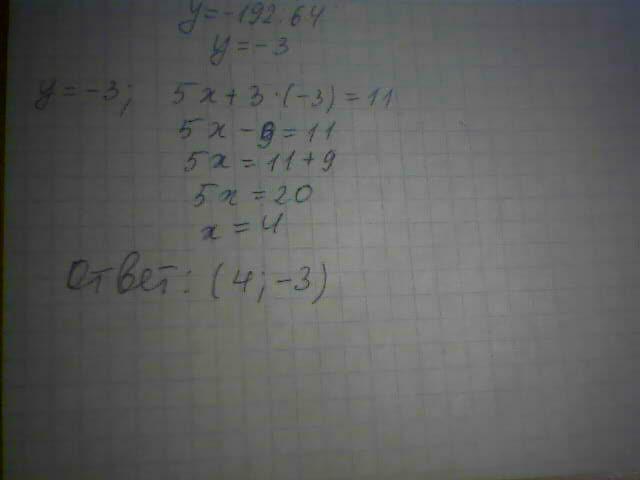 y=-192:64
y=-3
y=-3; 5x+3·(-3)=11
5x-9=11
5x=11+9
5x=20
x=4
Ответ: (4;-3)